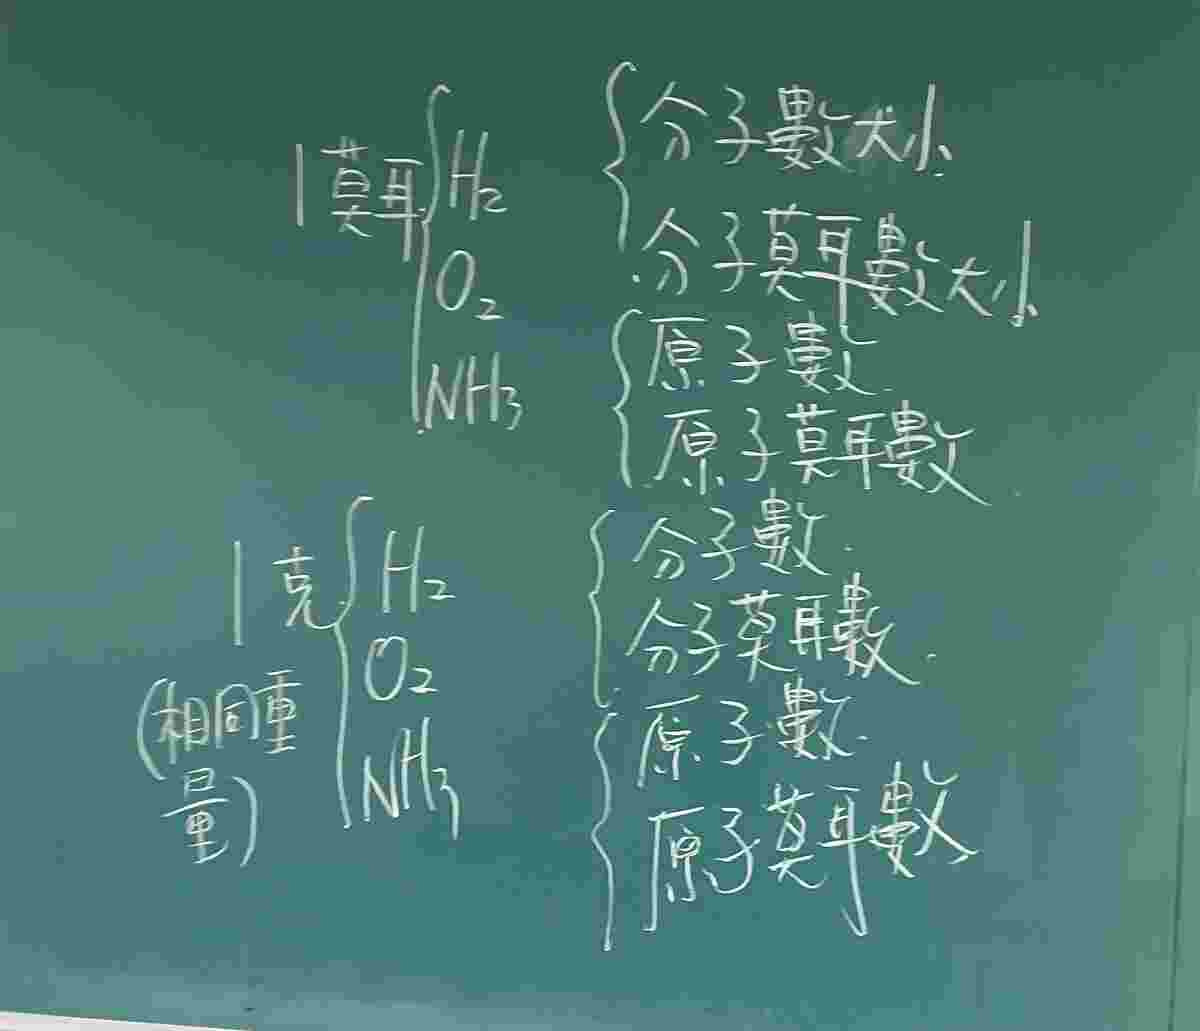 1莫耳 H₂ 分子數大小
分子莫耳數大小
O₂
原子數
NH₃ 原子莫耳數
1克 H₂ 分子數
分子莫耳數
(相同重量) O₂
原子數
NH₃ 原子莫耳數